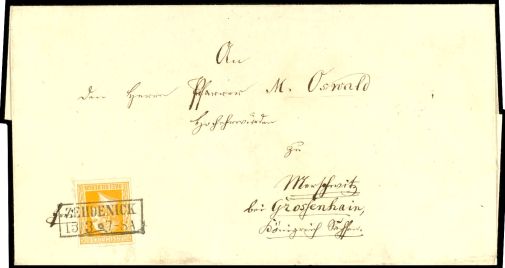 An
den Herrn Pfarrer M. Oswald
Hochehrwürden
zu
Merschwitz
bei Grossenhain,
Königreich Sachsen.
ZEHDENICK